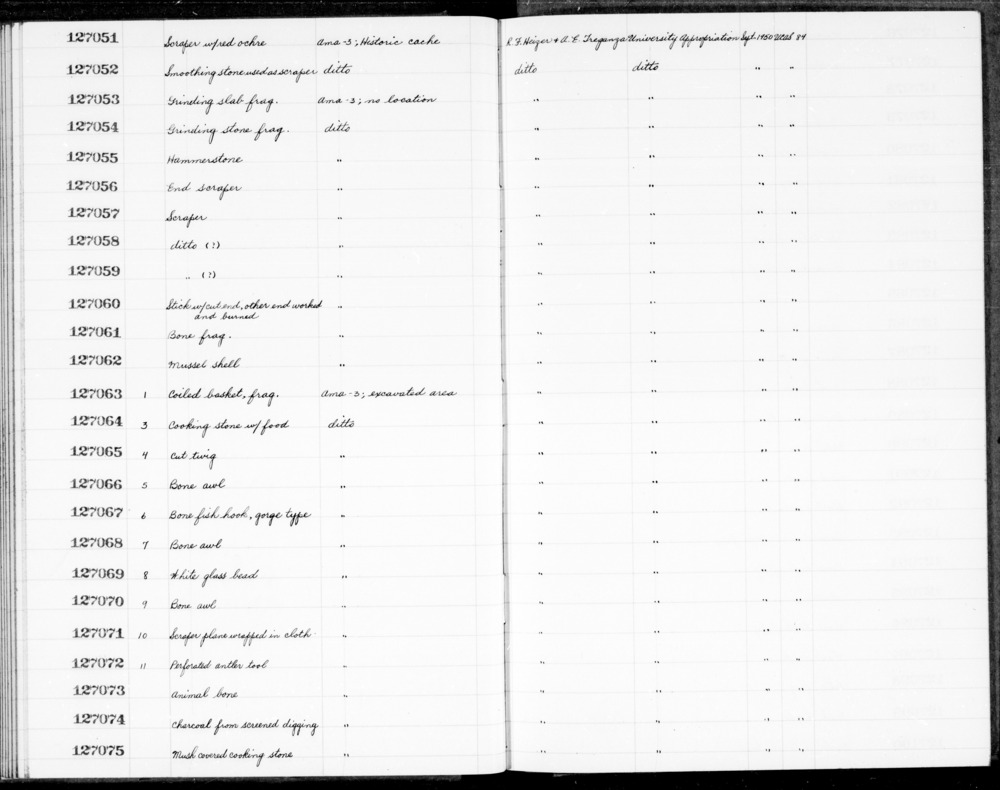 127051 Scraper w/red ochre Ama-3; Historic cache R. F. Heizer & A. E. Treganza University Appropriation Sept 1950 UCAS 84
127052 Smoothing stone used as scraper ditto ditto ditto " "
127053 Grinding slab frag. Ama-3; no location " " " "
127054 Grinding stone frag. ditto " " " "
127055 Hammerstone " " " " "
127056 End scraper " " " " "
127057 Scraper " " " " "
127058 ditto (?) " " " " "
127059 " (?) " " " " "
127060 Stick w/cut end, other end worked " " " " "
and burned
127061 Bone frag. " " " " "
127062 Mussel shell " " " " "
127063 1 Coiled basket, frag. Ama-3; excavated area " " " "
127064 3 Cooking stone w/ food ditto " " " "
127065 4 Cut twig " " " " "
127066 5 Bone awl " " " " "
127067 6 Bone fish hook, gorge type " " " " "
127068 7 Bone awl " " " " "
127069 8 White glass bead " " " " "
127070 9 Bone awl " " " " "
127071 10 Scraper plane wrapped in cloth " " " " "
127072 11 Perforated antler tool " " " " "
127073 Animal bone " " " " "
127074 Charcoal from screened digging " " " " "
127075 Mush covered cooking stone " " " " "